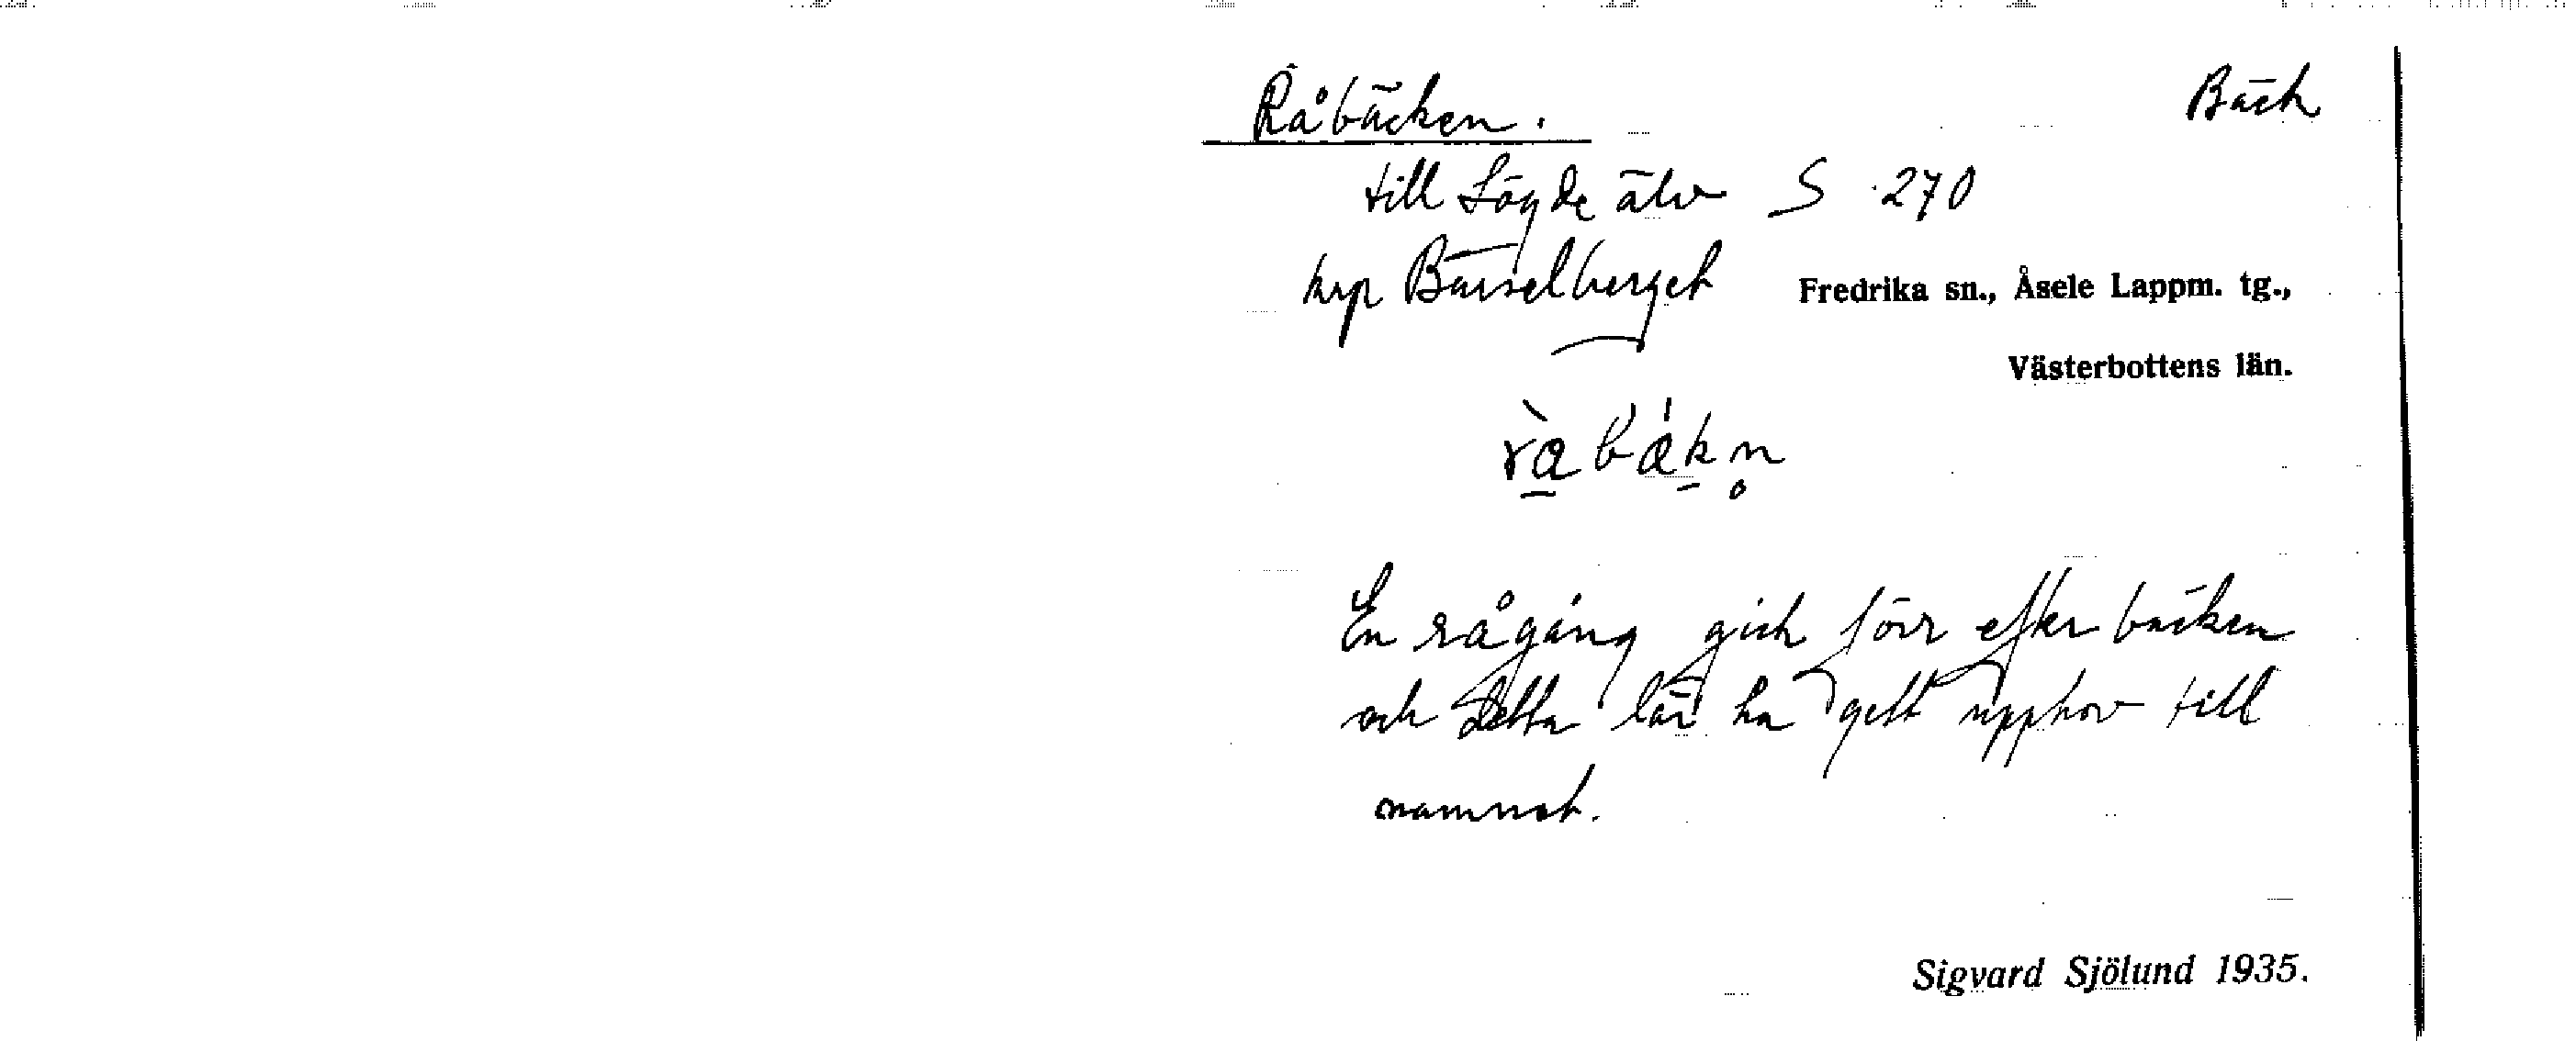 Råbäcken. Bäck
till Lögde älv S 270
krp Baiselberget Fredrika sn., Åsele Lappm. tg.,
Västerbottens län.
En rågång gick förr efter bäcken
och detta lär ha gett upphov till
namnet.
Sigvard Sjölund 1935.